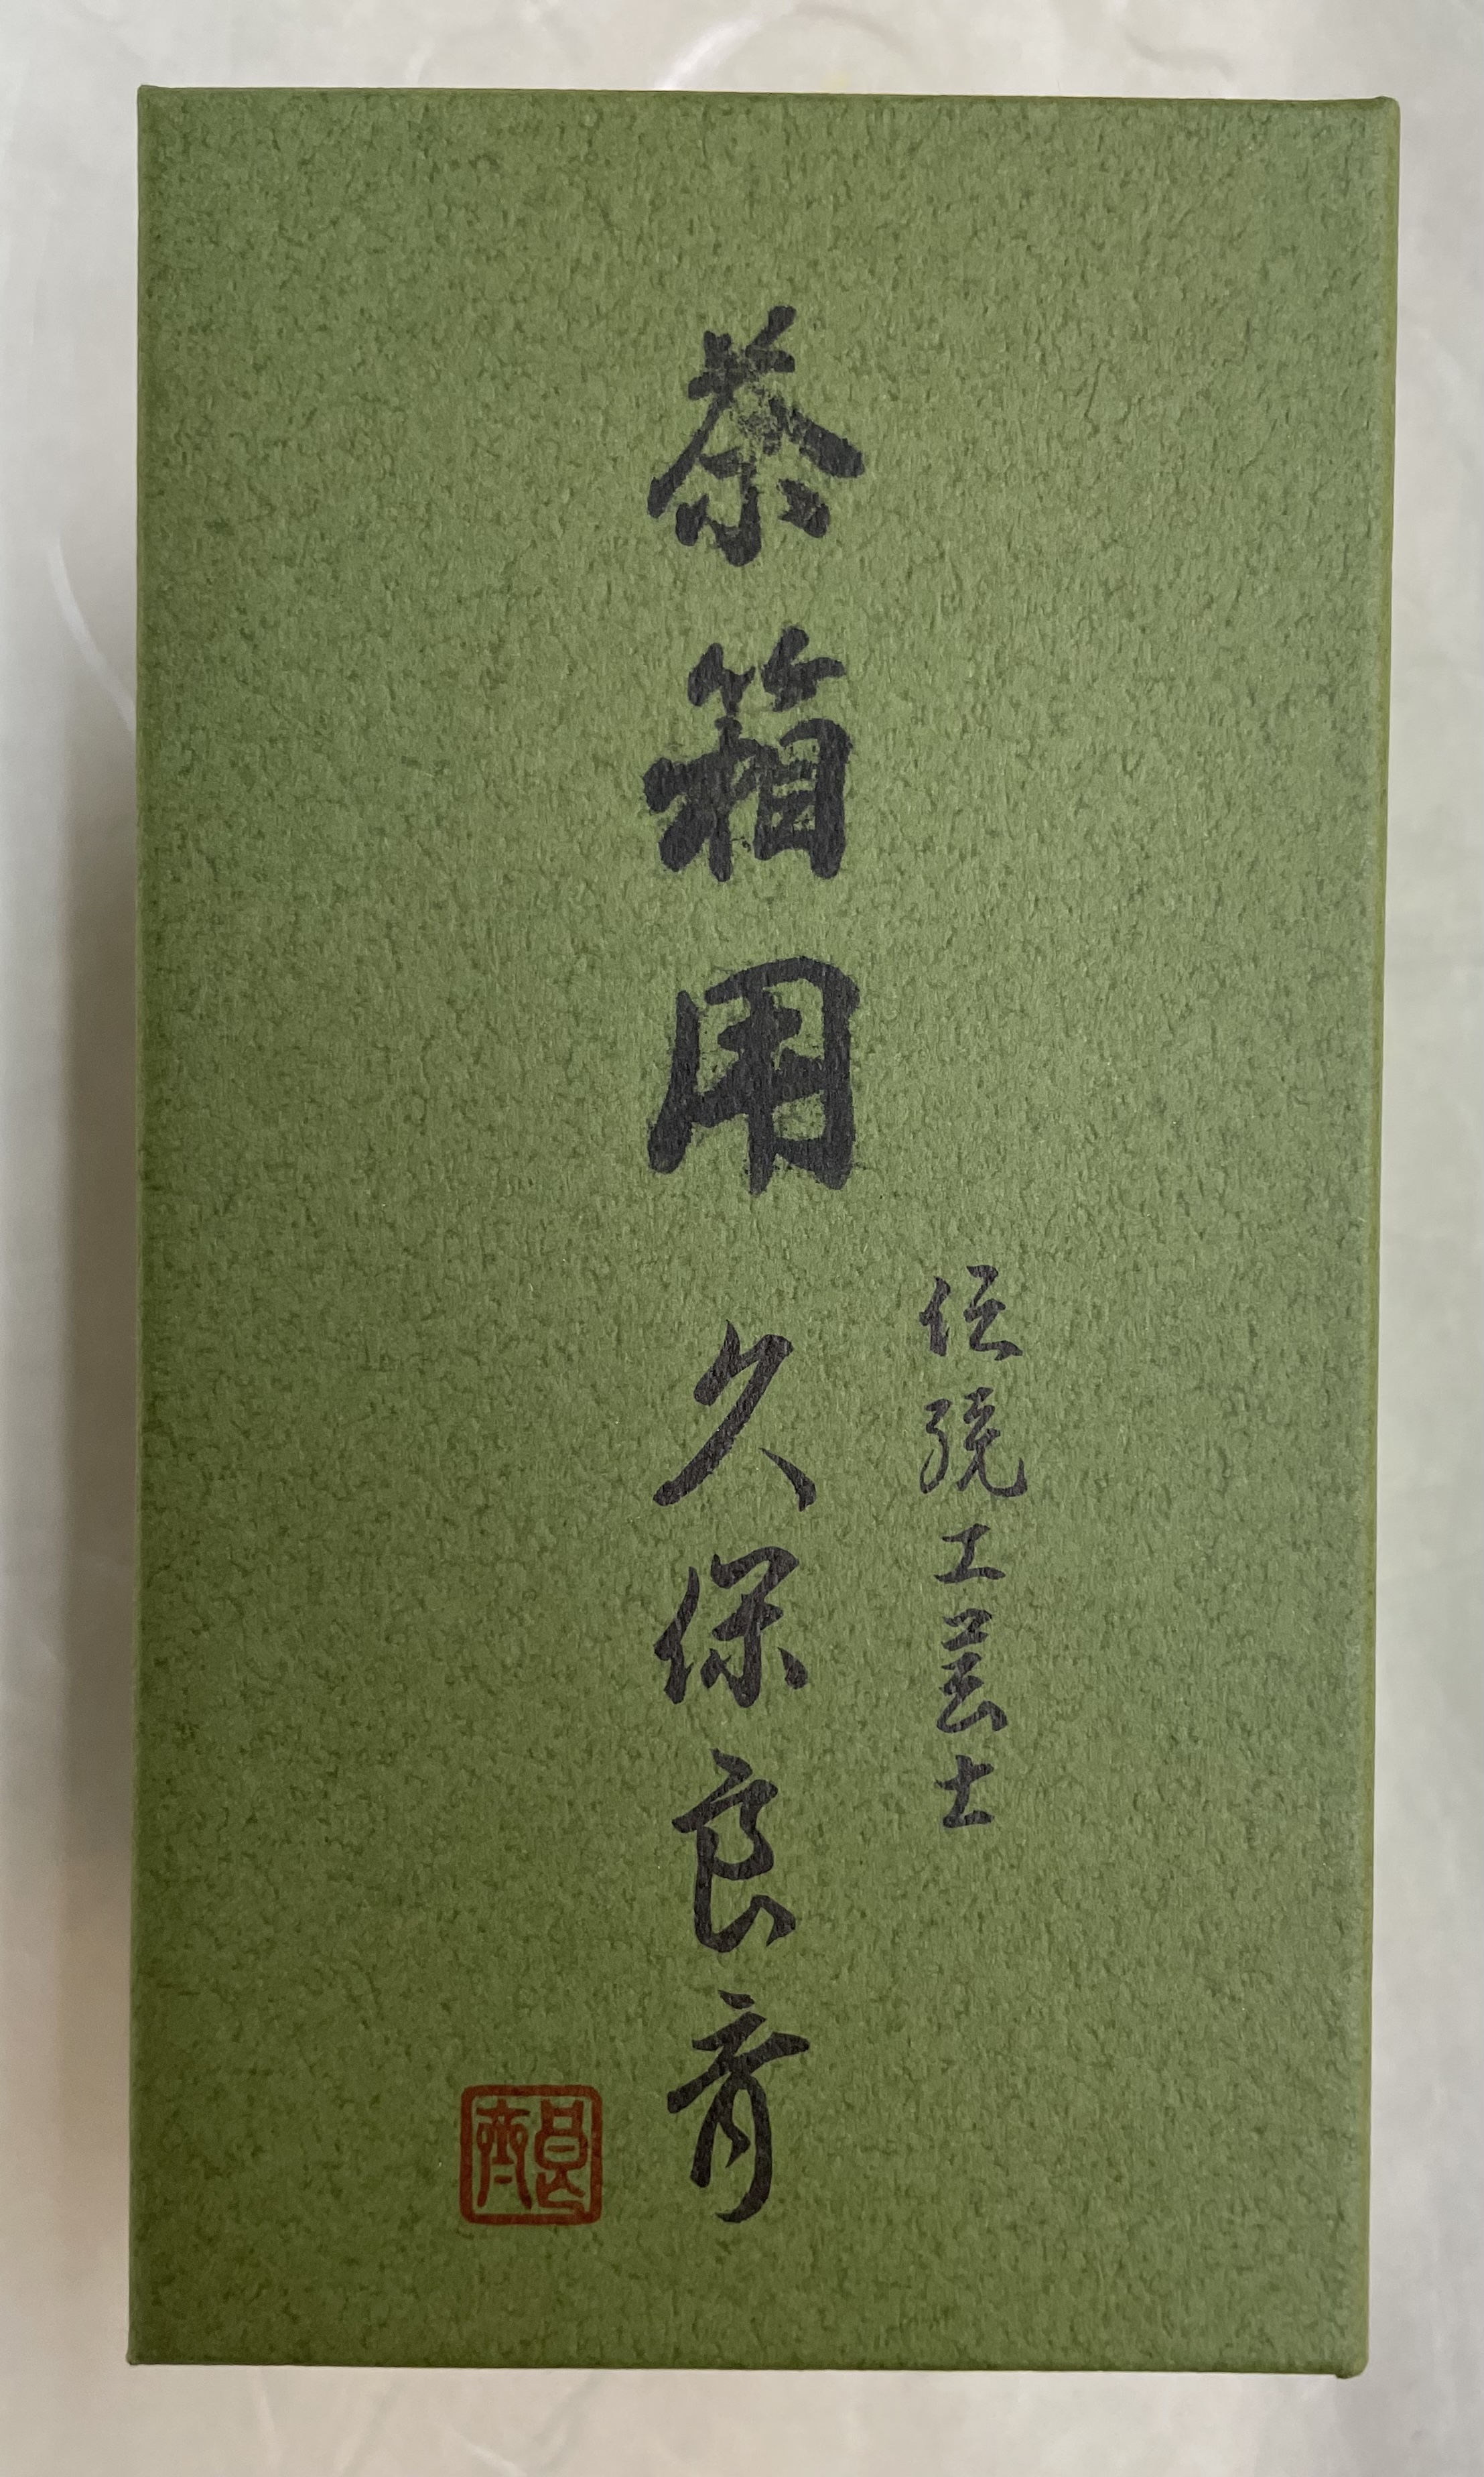 伝統工芸士
茶箱用 久保良斉
良齊